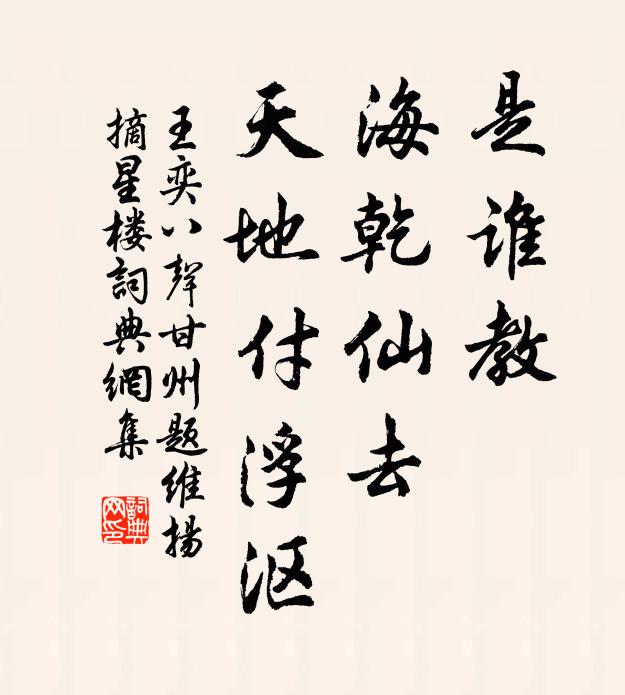 是谁教
海乾仙去
天地付浮沤
王奕八聲甘州题维揚
摘星楼詞典網集
詞典网印